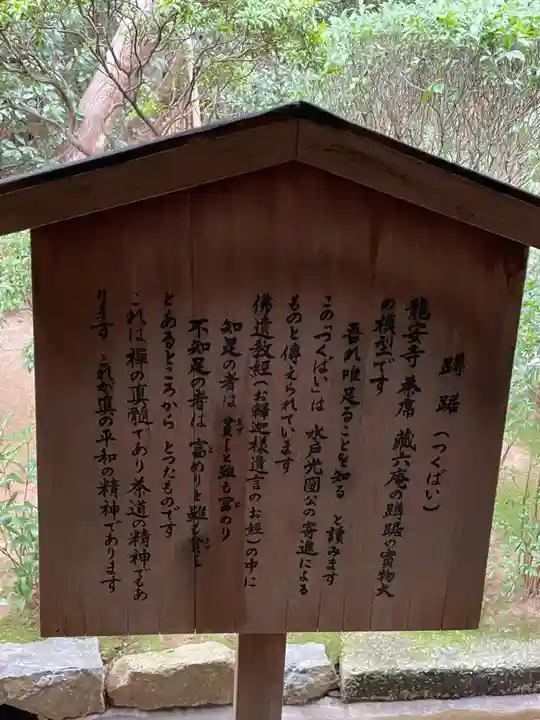 蹲踞（つくばい）
龍安寺茶席蔵六庵の蹲踞の實物大
の模型です
吾れ唯足ることを知る と讀みます
この「つくばい」は 水戸光圀公の寄進による
ものと傳えられています
佛遺教經（お釋迦様遺言のお經）の中に
知足の者は 貧しと雖も富めり
不知足の者は 富めりと雖も
とあるところから とつたものです
これは禅の真髄であり茶道の精神でもあ
ります これが真の平和の精神であります